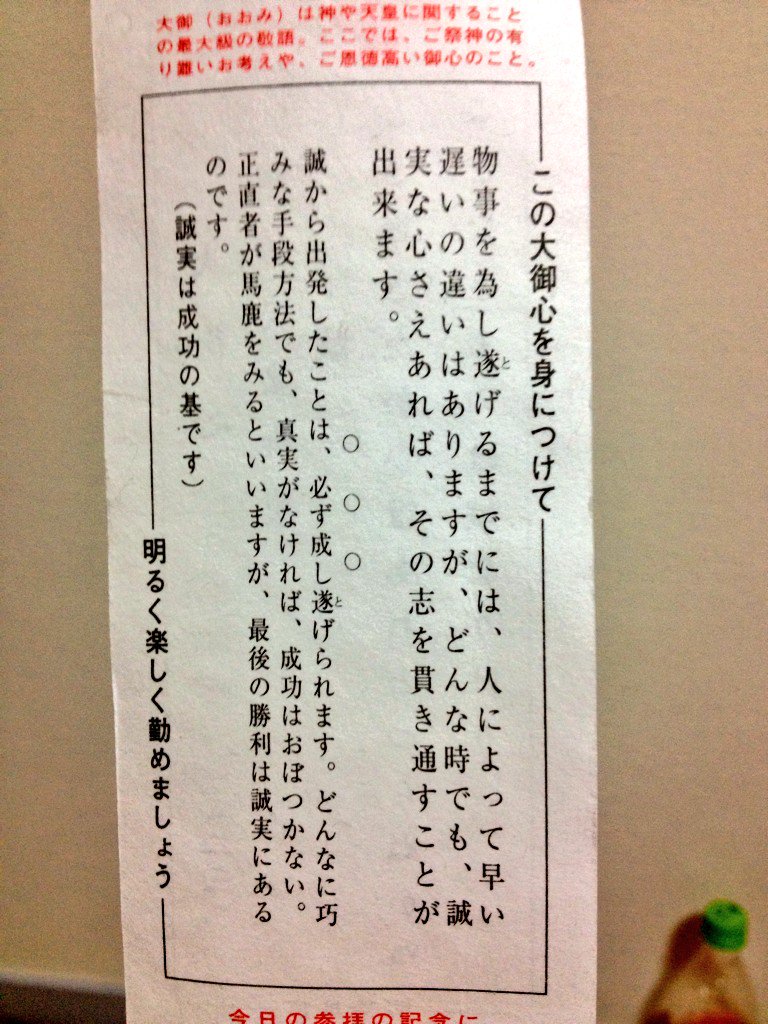 大御（おおみ）は神や天皇に関すること
の最大級の敬語。ここでは、ご祭神の有
り難いお考えや、ご恩徳高い御心のこと。
この大御心を身につけて
物事を為し遂げるまでには、人によって早い
遅いの違いはありますが、どんな時でも、誠
実な心さえあれば、その志を貫き通すことが
出来ます。
○ ○ ○
誠から出発したことは、必ず成し遂げられます。どんなに巧
みな手段方法でも、真実がなければ、成功はおぼつかない。
正直者が馬鹿をみるといいますが、最後の勝利は誠実にある
のです。
（誠実は成功の基です）
明るく楽しく勤めましょう
今日の参拝の記念に